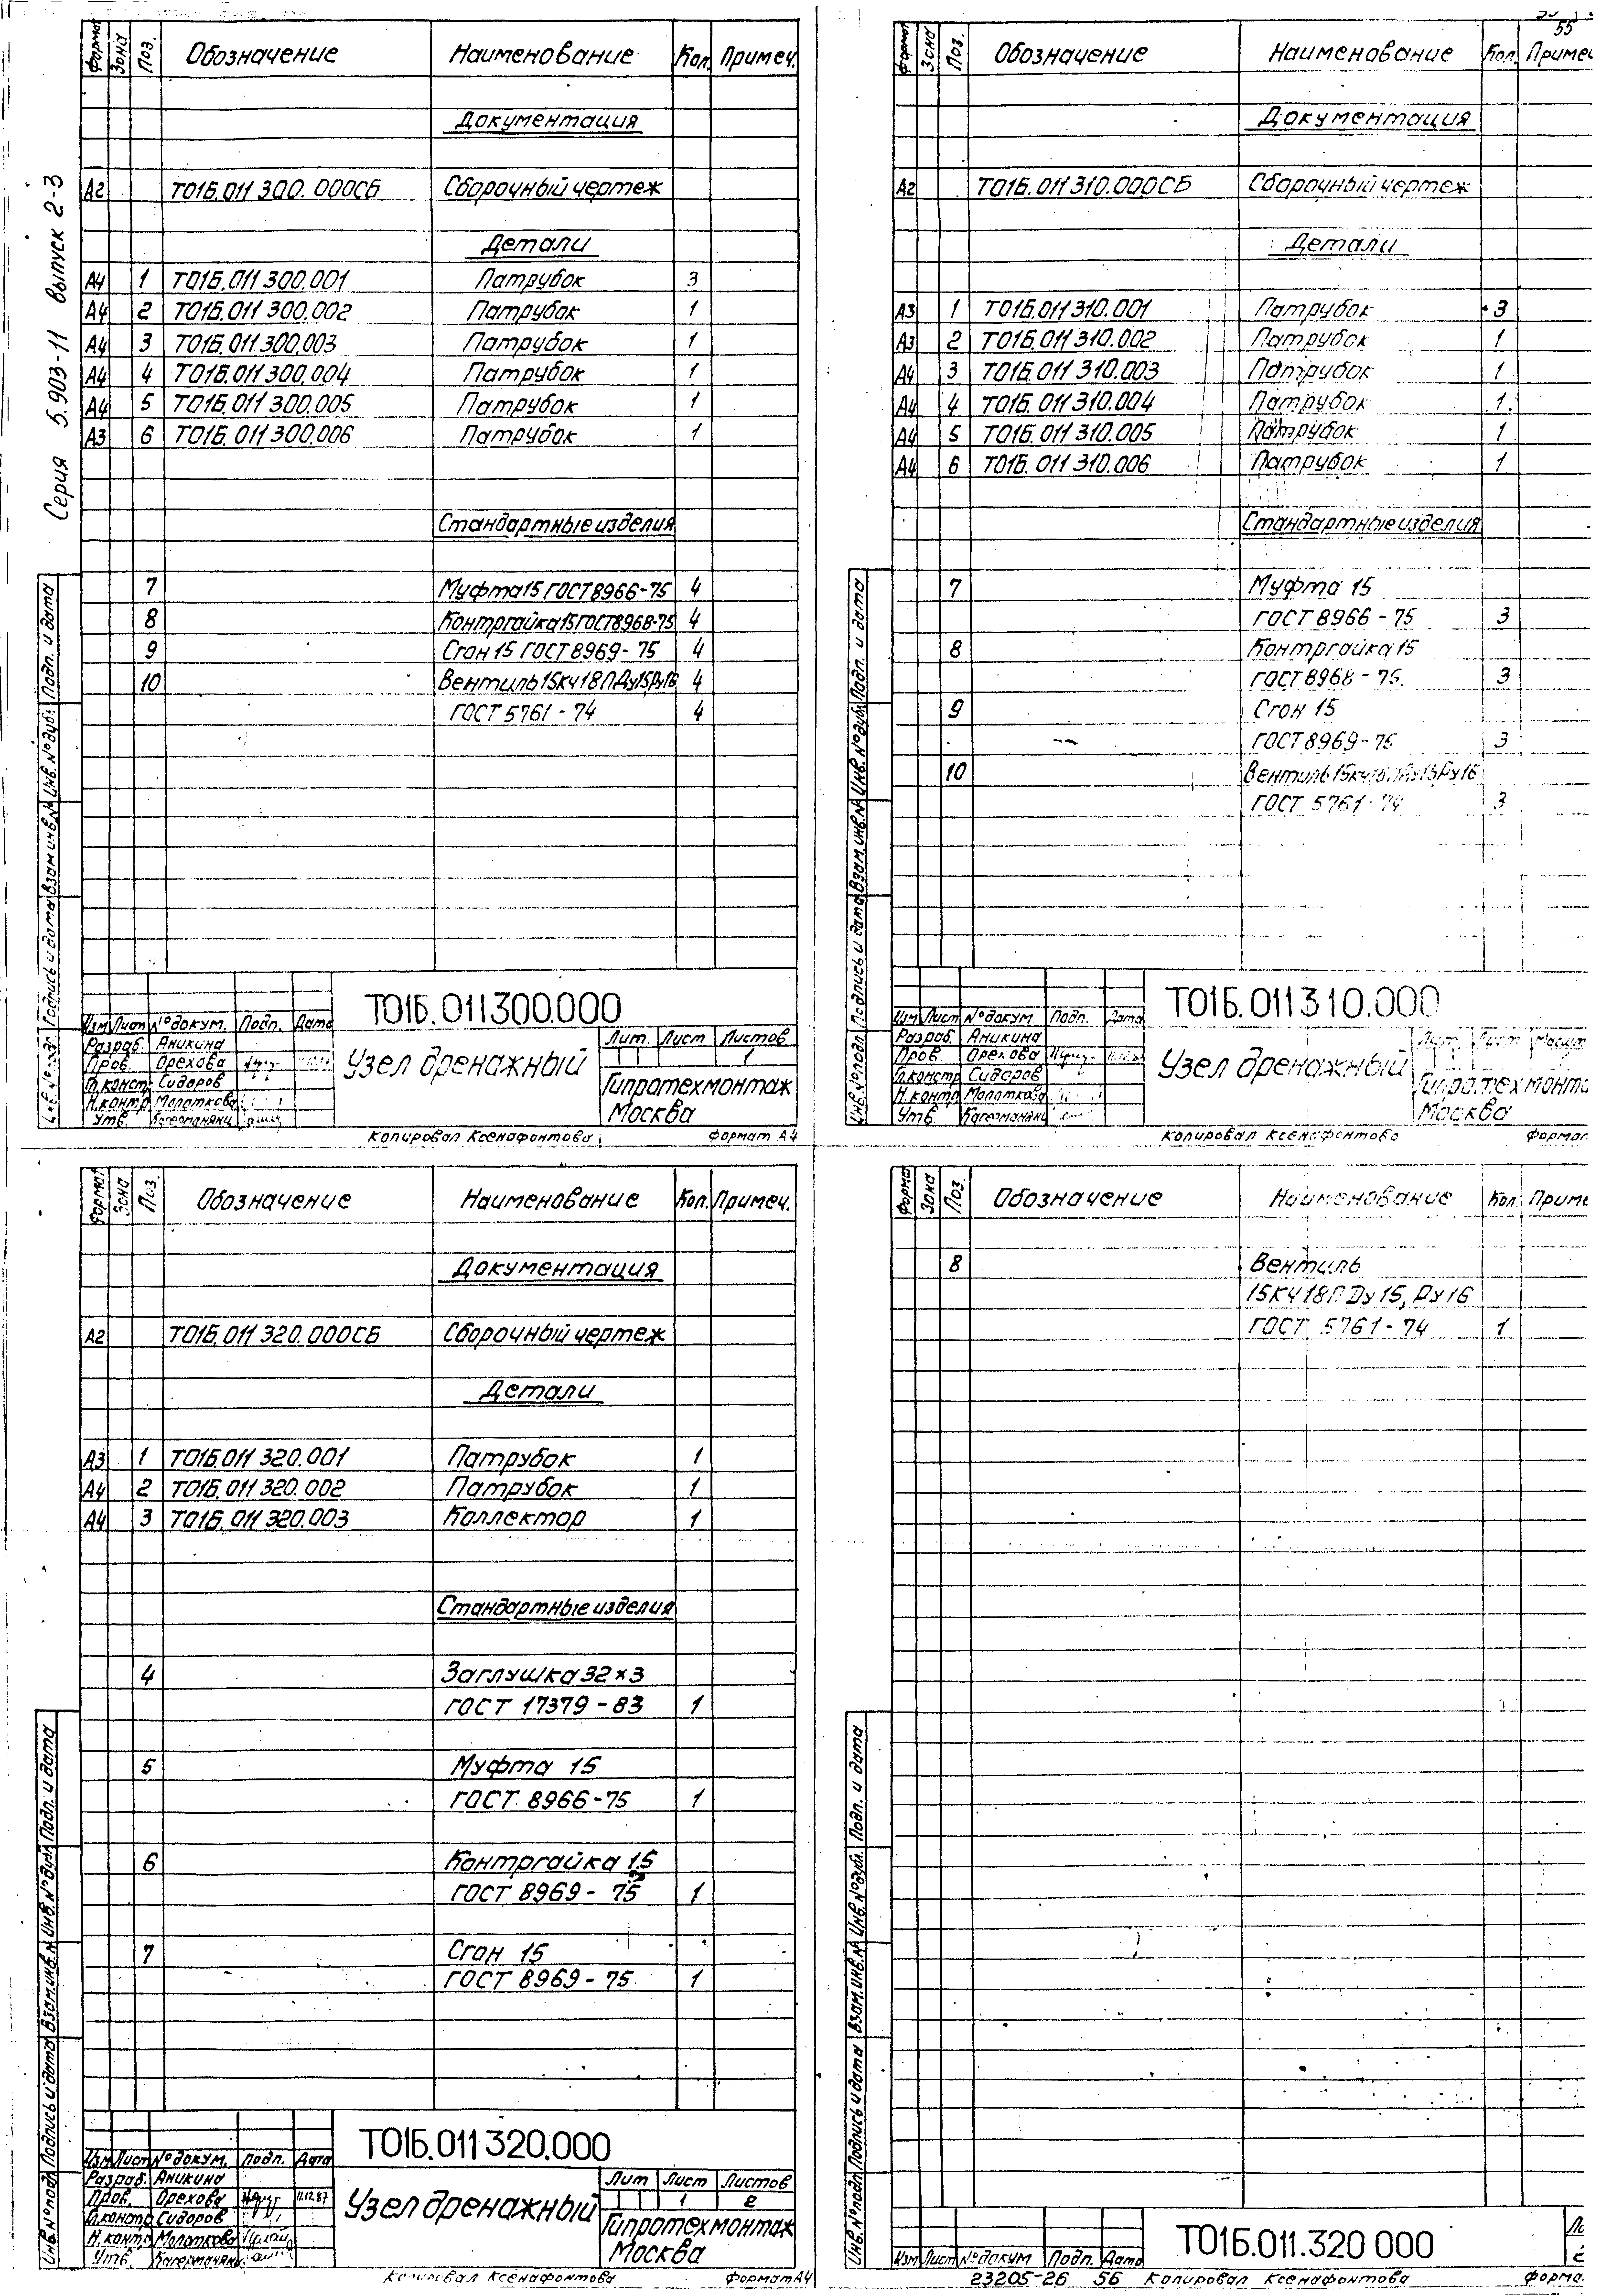 Серия 5.903-11 выпуск 2-3
Формат Зона Поз. Обозначение Наименование Кол. Примеч.
Документация
А2 Т01Б.011 300.000СБ Сборочный чертеж
Детали
А4 1 Т01Б.011 300.001 Патрубок 3
А4 2 Т01Б.011 300.002 Патрубок 1
А4 3 Т01Б.011 300.003 Патрубок 1
А4 4 Т01Б.011 300.004 Патрубок 1
А4 5 Т01Б.011 300.005 Патрубок 1
А3 6 Т01Б.011 300.006 Патрубок 1
Стандартные изделия
7 Муфта 15 ГОСТ 8966-75 4
8 Контргайка 15 ГОСТ 8968-75 4
9 Сгон 15 ГОСТ 8969-75 4
10 Вентиль 15кч18П Ду15, Ру16 4
ГОСТ 5761-74 4
Инв. № подл. Подпись и дата Взам. инв. № Инв. № дубл. Подп. и дата
Т01Б.011300.000
Изм Лист № докум. Подп. Дата
Разраб. Аникина
Пров. Орехова
Гл.констр. Сидоров
Н.контр. Молоткова
Утв.
Узел дренажный
Лит. Лист Листов
1
Гипротехмонтаж
Москва
Копировал Ксенафонтова Формат А4
55
Формат Зона Поз. Обозначение Наименование Кол. Примеч
Документация
А2 Т01Б.011 310.000СБ Сборочный чертеж
Детали
А3 1 Т01Б.011 310.001 Патрубок 3
А3 2 Т01Б.011 310.002 Патрубок 1
А4 3 Т01Б.011 310.003 Патрубок 1
А4 4 Т01Б.011 310.004 Патрубок 1
А4 5 Т01Б.011 310.005 Патрубок 1
А4 6 Т01Б.011 310.006 Патрубок 1
Стандартные изделия
7 Муфта 15
ГОСТ 8966-75 3
8 Контргайка 15
ГОСТ 8968-75 3
9 Сгон 15
ГОСТ 8969-75 3
10 Вентиль 15кч18П Ду15 Ру16
ГОСТ 5761-74 3
Инв. № подл. Подпись и дата Взам. инв. № Инв. № дубл. Подп. и дата
Т01Б.011310.000
Изм Лист № докум. Подп. Дата
Разраб. Аникина
Пров. Орехова
Гл.констр Сидоров
Н.контр Молоткова
Утв.
Узел дренажный
Лит. Лист
Гипротехмонта
Москва
Копировал Ксенафонтова Формат
Формат Зона Поз. Обозначение Наименование Кол. Примеч.
Документация
А2 Т01Б.011 320.000СБ Сборочный чертеж
Детали
А3 1 Т01Б.011 320.001 Патрубок 1
А4 2 Т01Б.011 320.002 Патрубок 1
А4 3 Т01Б.011 320.003 Коллектор 1
Стандартные изделия
4 Заглушка 32×3
ГОСТ 17379-83 1
5 Муфта 15
ГОСТ 8966-75 1
6 Контргайка 15
ГОСТ 8969-75 1
7 Сгон 15
ГОСТ 8969-75 1
Инв. № подл. Подпись и дата Взам. инв. № Инв. № дубл. Подп. и дата
Т01Б.011320.000
Изм Лист № докум. Подп. Дата
Разраб. Аникина
Пров. Орехова 11.12.87
Гл.констр Сидоров
Н.контр Молоткова
Утв.
Узел дренажный
Лит Лист Листов
1 2
Гипротехмонтаж
Москва
Копировал Ксенафонтова Формат А4
Формат Зона Поз. Обозначение Наименование Кол. Приме
8 Вентиль
15Кч18П Ду15, Ру16
ГОСТ 5761-74 1
Инв. № подл. Подпись и дата Взам. инв. № Инв. № дубл. Подп. и дата
Т01Б.011.320 000
Изм Лист № докум Подп. Дата
23205-26 56 Копировал Ксенафонтова Форма